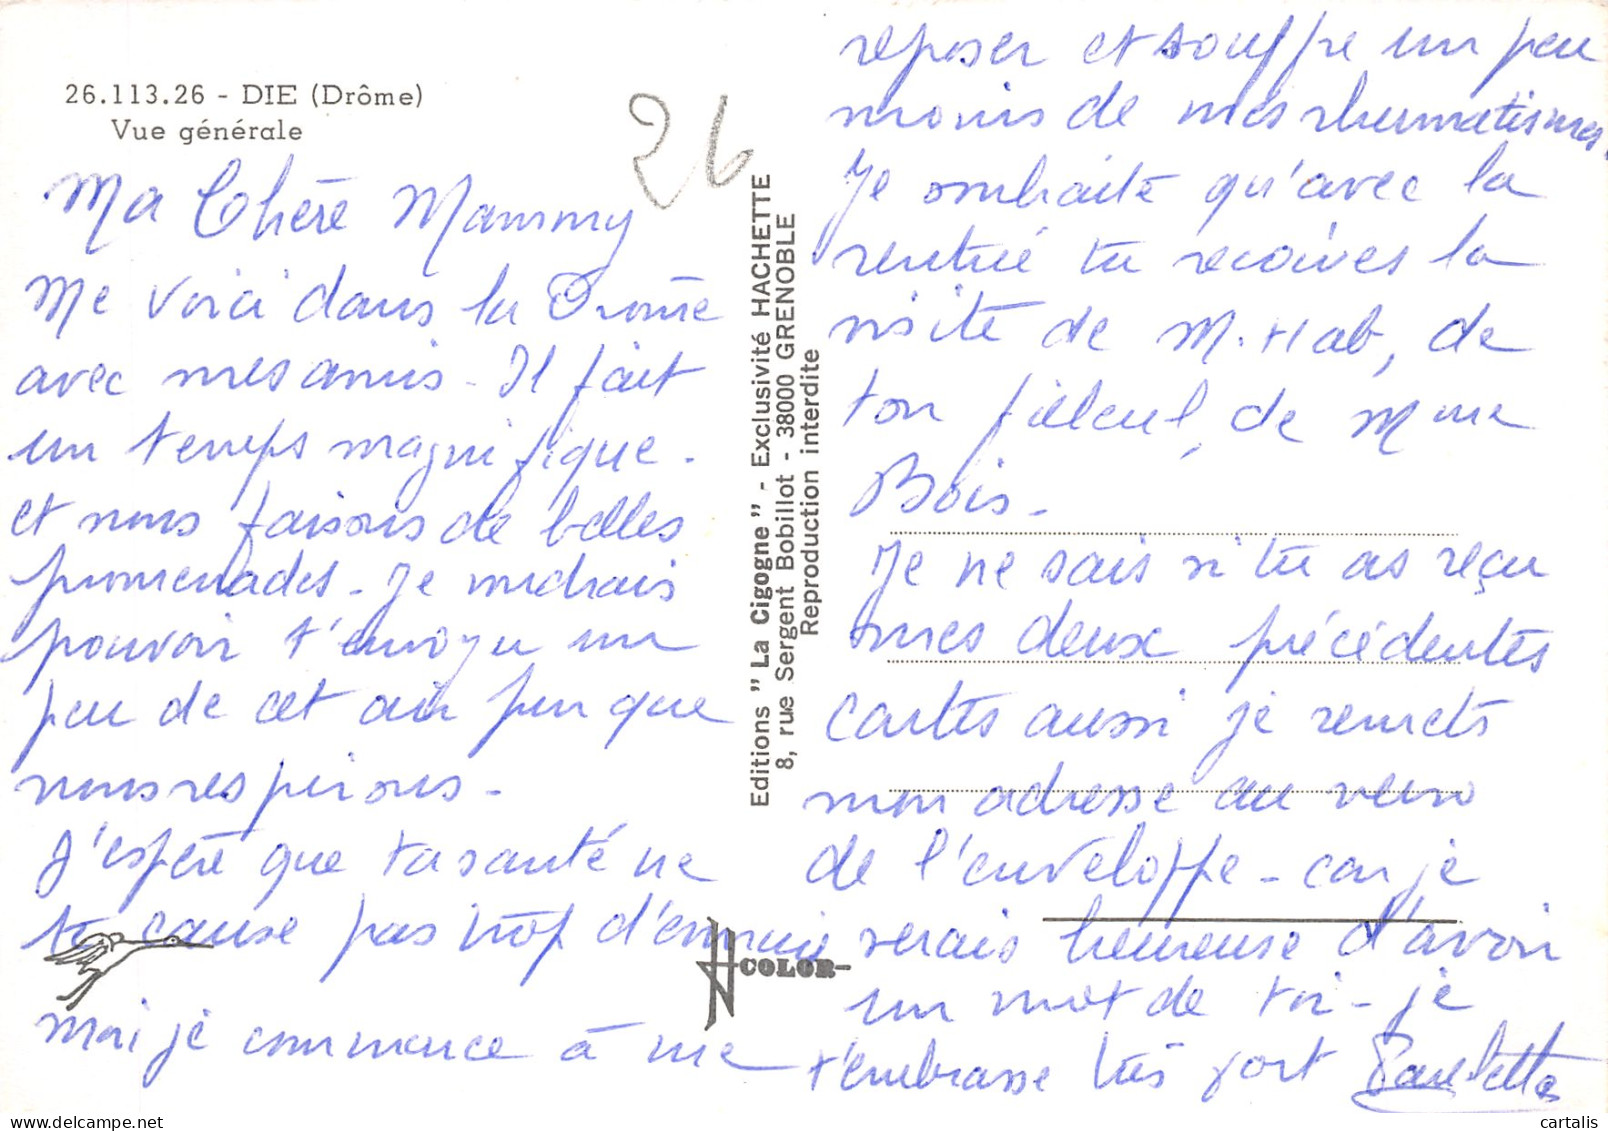 26.113.26 - DIE (Drôme)
Vue générale
26
Ma Chère Mammy
Me voici dans la Drôme
avec mes amis - Il fait
un temps magnifique -
et nous faisons de belles
promenades - Je voudrais
pouvoir t'envoyer un
peu de cet air pur que
nous respirons -
J'espère que ta santé ne
te cause pas trop d'ennuis
moi je commence à me
Editions " La Cigogne " - Exclusivité HACHETTE
8, rue Sergent Bobillot - 38000 GRENOBLE
Reproduction interdite
COLOR
reposer et souffre un peu
moins de mes rhumatismes.
Je souhaite qu'avec la
rentrée tu reçoives la
visite de M. Hab, de
ton filleul, de Mme
Bois -
Je ne sais si tu as reçu
mes deux précédentes
cartes aussi je remets
mon adresse au verso
de l'enveloppe - car je
serais heureuse d'avoir
un mot de toi - je
t'embrasse très fort Paulette
cartalis
delcampe.net